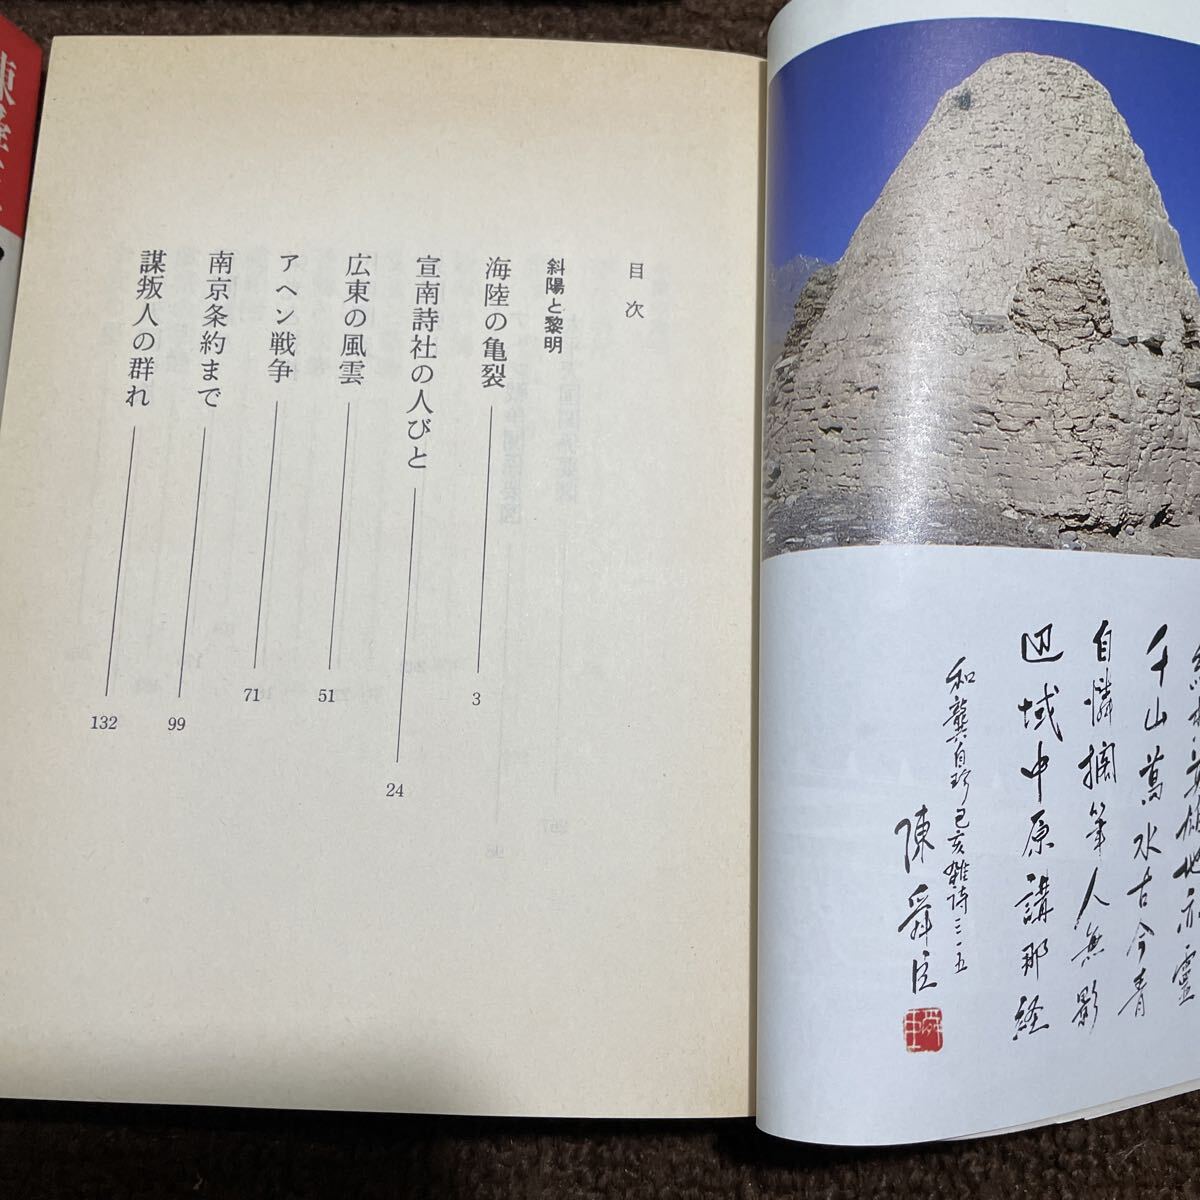 目次
斜陽と黎明
海陸の亀裂 3
宣南詩社の人びと 24
広東の風雲 51
アヘン戦争 71
南京条約まで 99
謀叛人の群れ 132
千山萬水古今青
自憐摛筆人無影
辺域中原講那経
和龔自珍己亥雑詩三一五
陳舜臣
舜臣